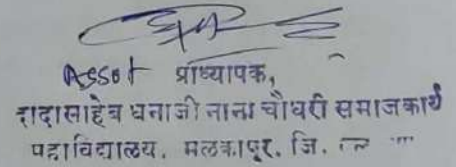 Asst प्राध्यापक,
दादासाहेब धनाजी नाना चौधरी समाजकार्य
महाविद्यालय, मलकापुर, जि.